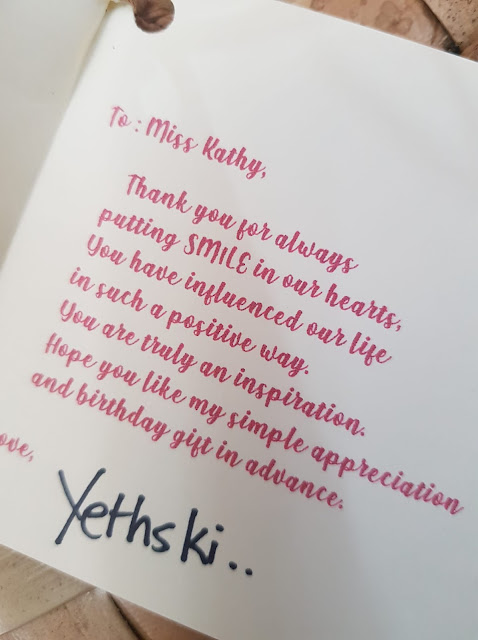 To : Miss Kathy,
Thank you for always
putting SMILE in our hearts,
You have influenced our life
in such a positive way.
You are truly an inspiration.
Hope you like my simple appreciation
and birthday gift in advance.
ove,
Yethski..